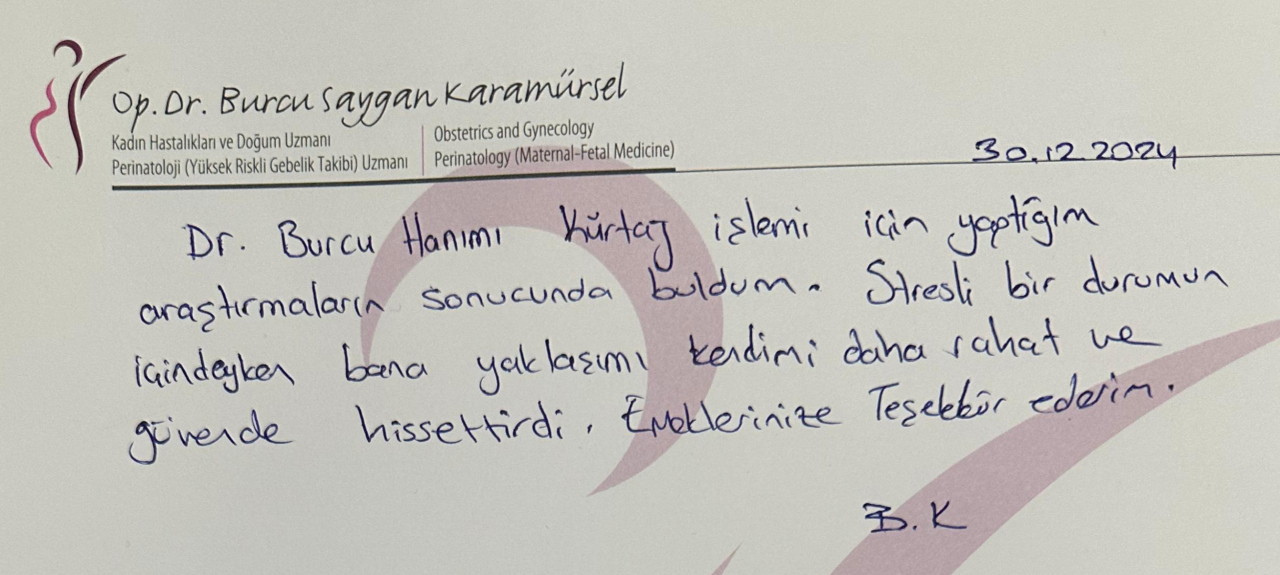 Op. Dr. Burcu Saygan Karamürsel
Kadın Hastalıkları ve Doğum Uzmanı
Perinatoloji (Yüksek Riskli Gebelik Takibi) Uzmanı
Obstetrics and Gynecology
Perinatology (Maternal-Fetal Medicine)
30.12.2024
Dr. Burcu Hanımı Kürtaj işlemi için yaptığım
araştırmaların sonucunda buldum. Stresli bir durumun
içindeyken bana yaklaşımı kendimi daha rahat ve
güvende hissettirdi. Emeklerinize Teşekkür ederim.
B.K